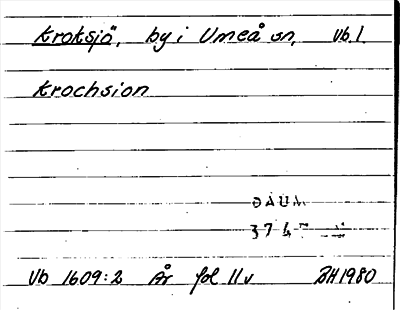 Kroksjö, by i Umeå sn, Vb.l.
Krochsion
DAUM
Vb 1609:2 År fol 11v BH 1980